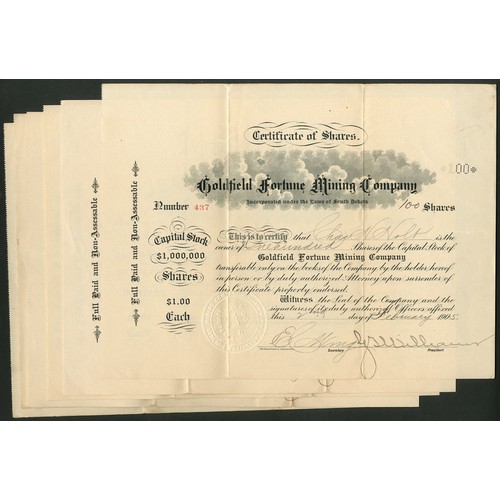 Certificate of Shares.
100
Goldfield Fortune Mining Company
Incorporated under the Laws of South Dakota
Number 437
100 Shares
Full Paid and Non-Assessable
Full Paid and Non-Assessable
Capital Stock
$1,000,000
Shares
$1.00
Each
This is to certify that Chas Holt is the
owner of One hundred Shares of the Capital Stock of
Goldfield Fortune Mining Company
transferable only on the books of the Company by the holder hereof
in person or by duly authorized Attorney upon surrender of
this Certificate properly endorsed.
Witness the Seal of the Company and the
signatures of its duly authorized Officers affixed
this day of February 1905.
Secretary
President